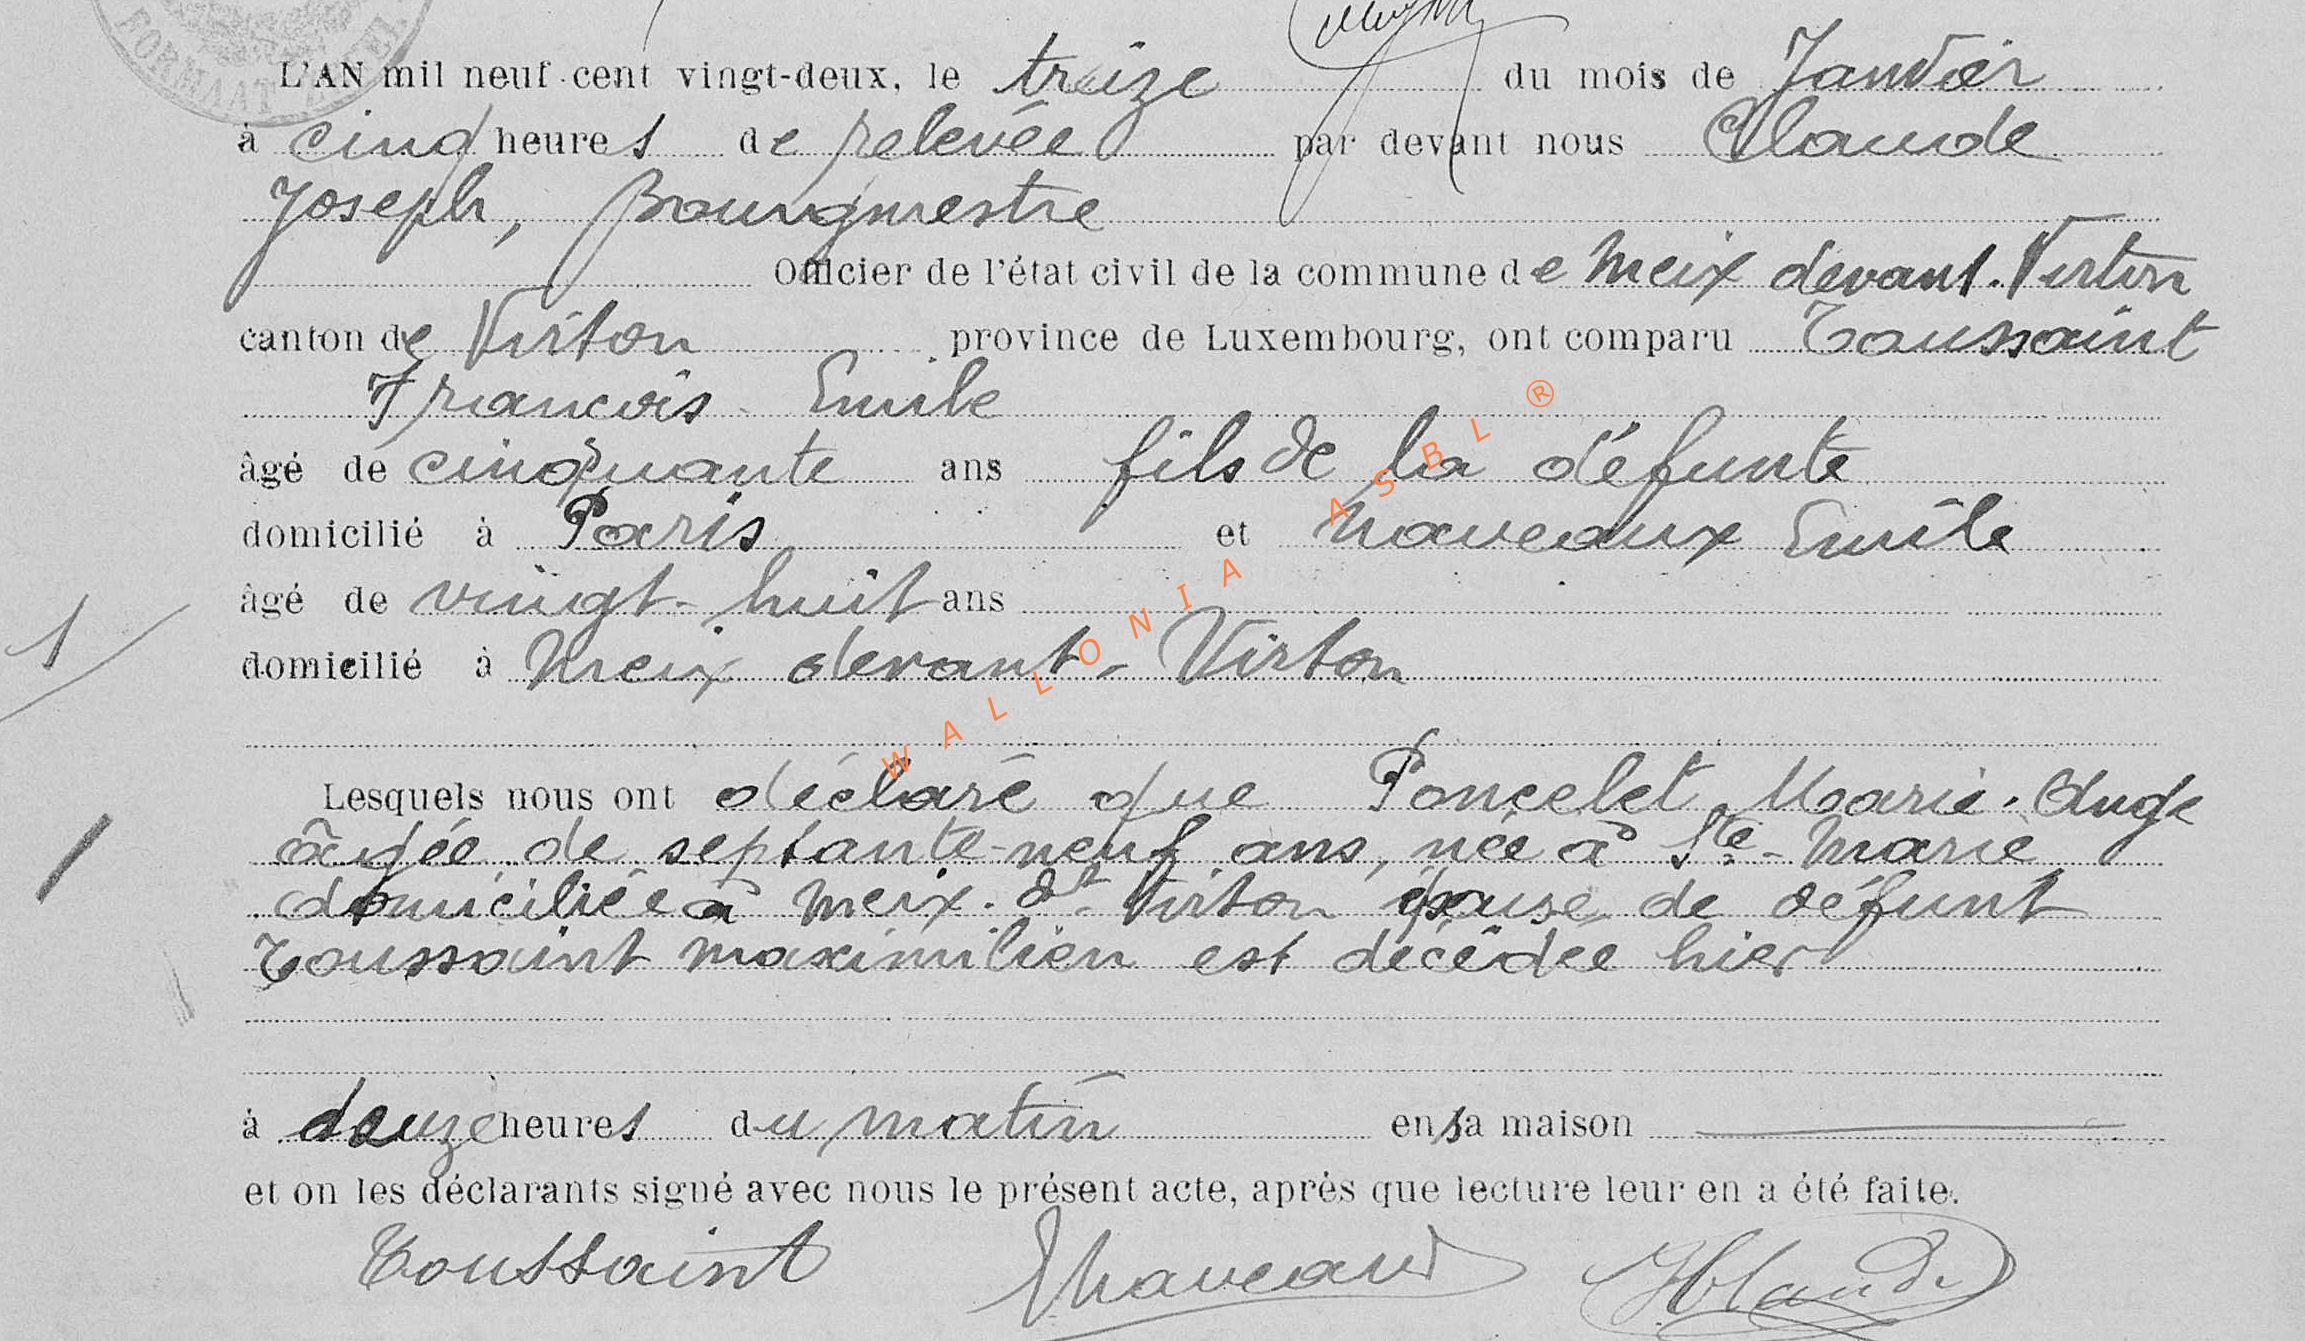 FORMAAT
L'AN mil neuf cent vingt-deux, le treize du mois de Janvier
à cinq heures de relevée par devant nous Claude
Joseph, Bourgmestre
Officier de l'état civil de la commune de Meix devant-Virton
canton de Virton province de Luxembourg, ont comparu Toussaint
François Emile
âgé de cinquante ans fils de la défunte
domicilié à Paris et Naveaux Emile
âgé de vingt-huit ans
domicilié à Meix devant-Virton
Lesquels nous ont déclaré que Poncelet Marie-Ange
âgée de septante-neuf ans, née à Ste-Marie
domiciliée à Meix-dt-Virton épouse de défunt
Toussaint Maximilien est décédée hier
à heures du matin en sa maison
et on les déclarants signé avec nous le présent acte, après que lecture leur en a été faite.
Toussaint ENaveaux JClaude
WALLONIA ASBL ®